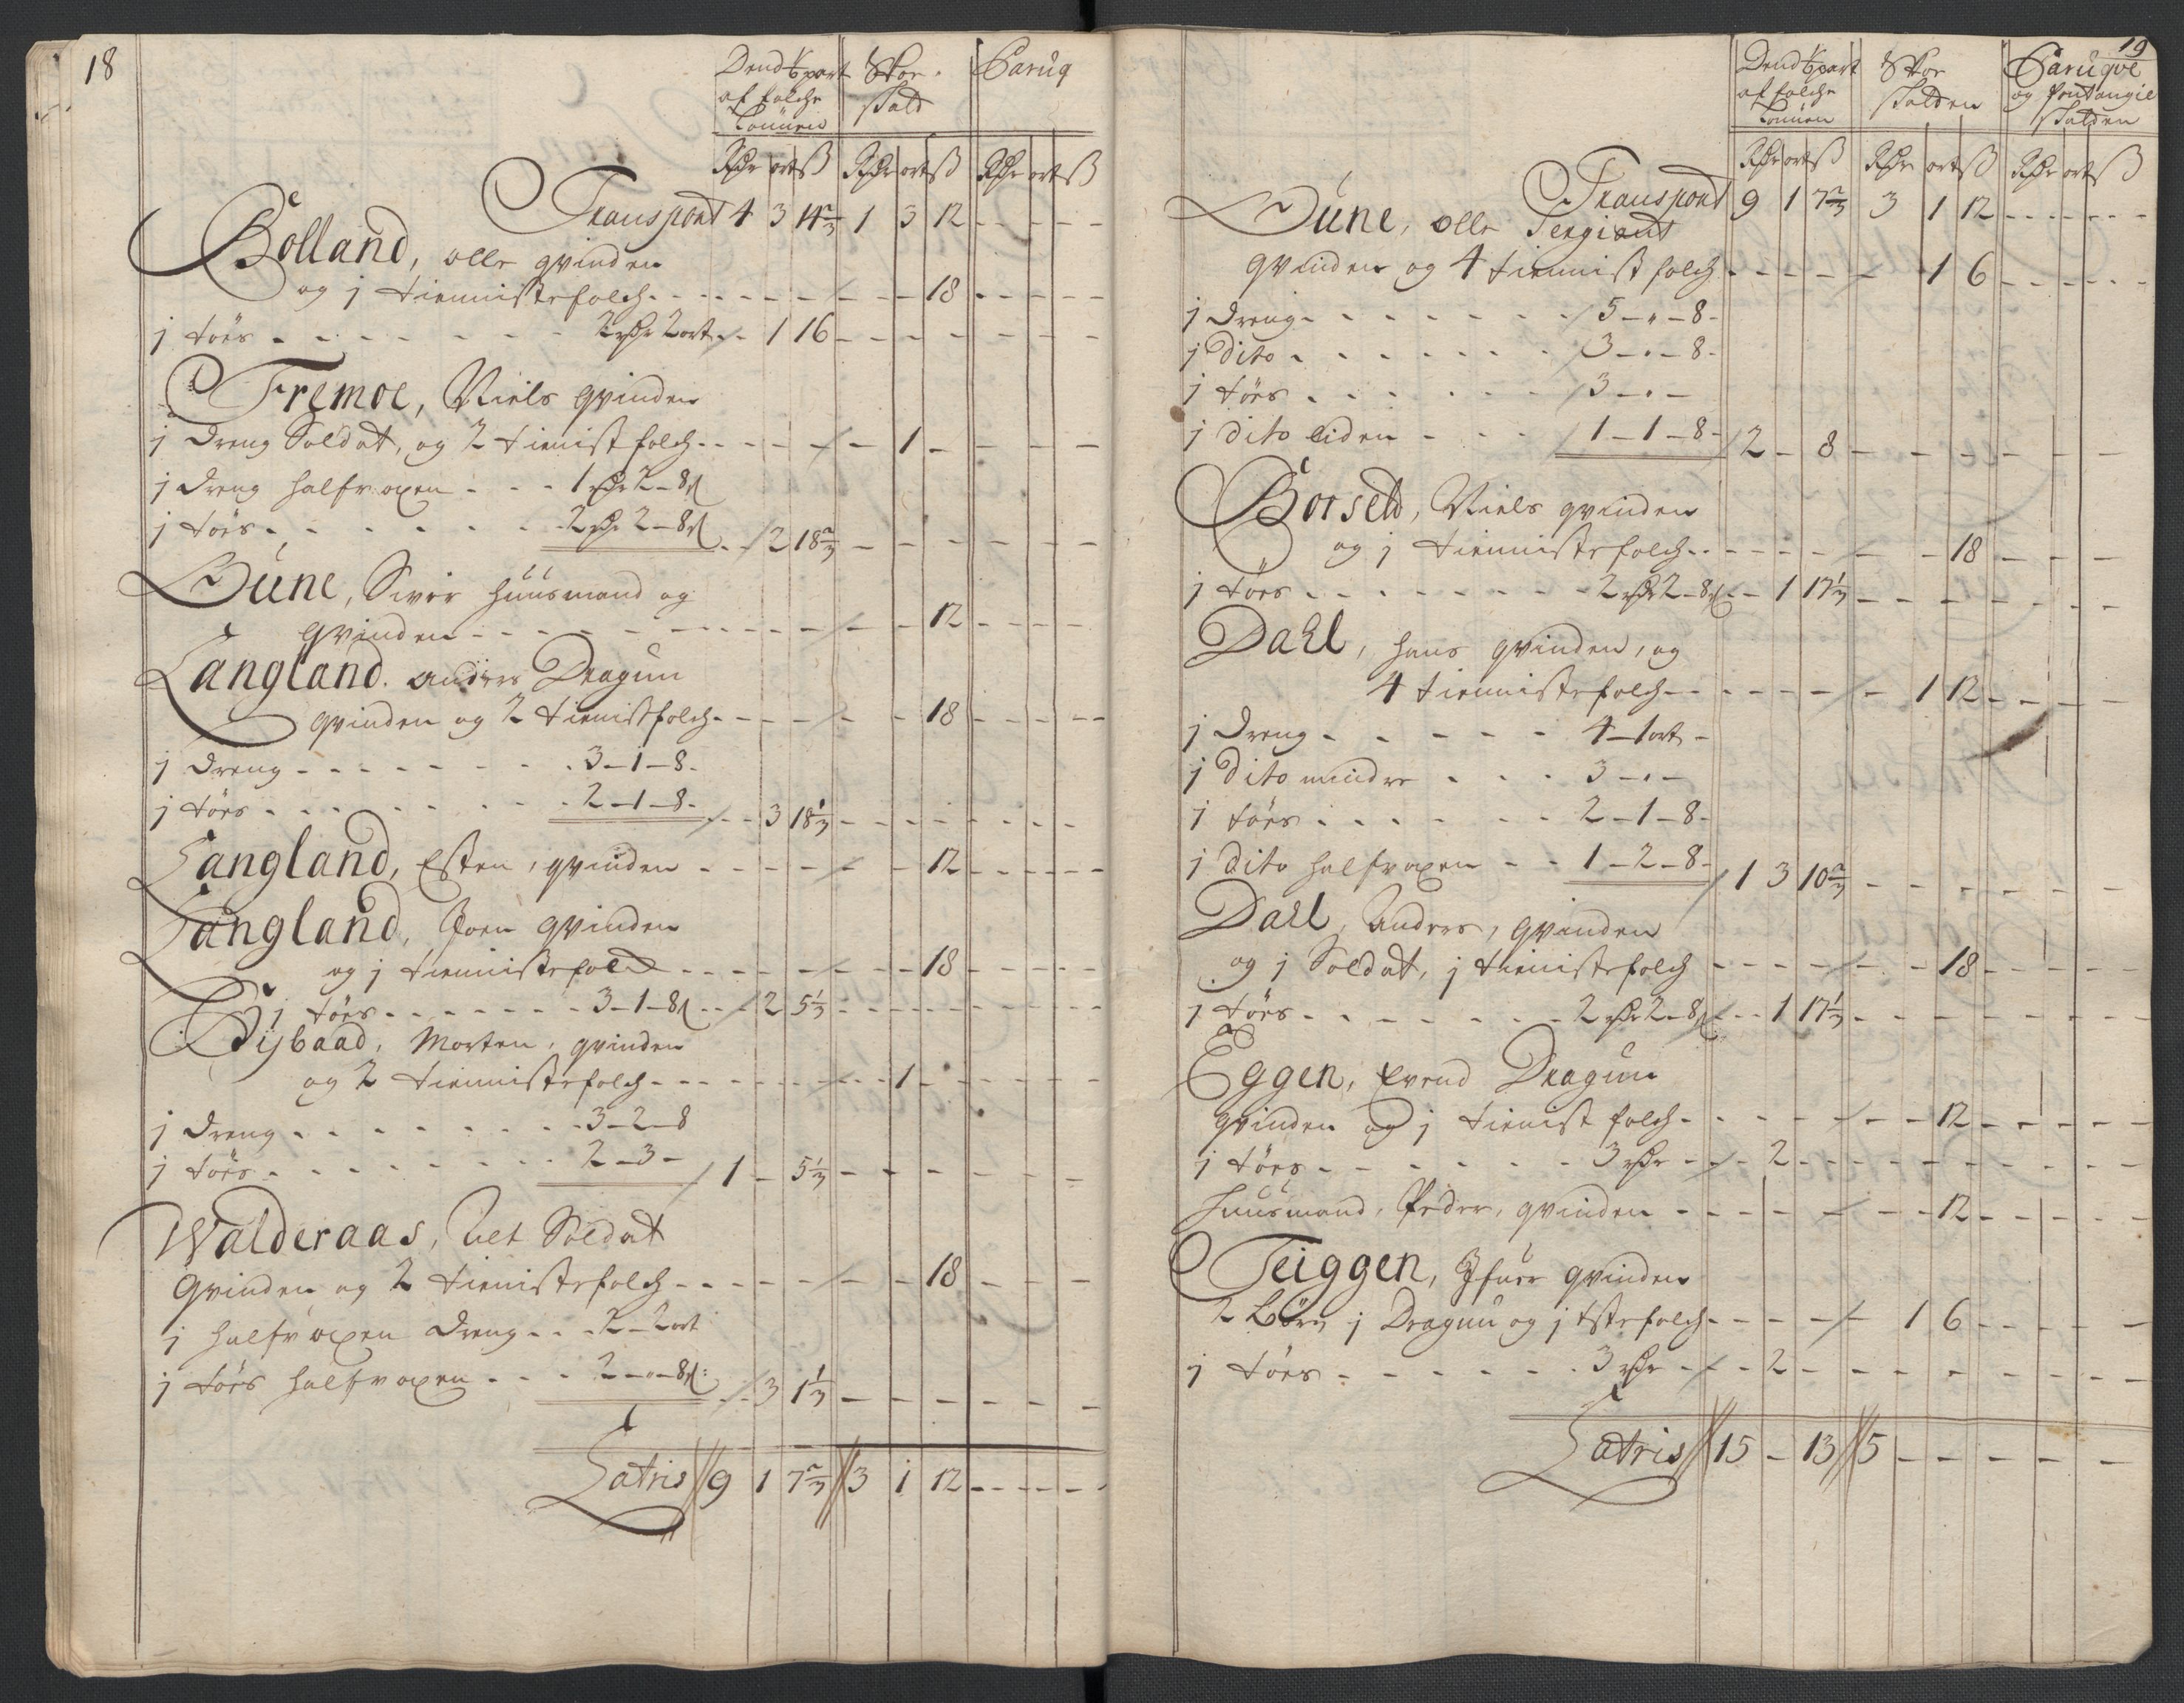 18
Dend 1/6 part af folche Lonnen | Skoe skatt | Paruq
Rdr ort ß | Rdr ort ß | Rdr ort ß
Transport 4 3 14 2/3 1 3 12 - - -
Bolland, olle qvinden
og j tiennistefolch - - - 18 - - -
j töes - - - 2 rdr 2 ort - 1 16 - - -
Fremoe, Niels qvinden
j dreng Soldat, og 2 tienist folch - - - 1 - - -
j dreng halfvoxen - - - 1 rdr 2 - 8 ß
j töes - - - 2 rdr 2 - 8 ß - 2 18 2/3 - - -
Bune, Siver huusmand og
qvinden - - - 12 - - -
Langland. anders Dragun
qvinden og 2 tienistfolch - - - 18 - - -
j dreng - - - 3 - 1 - 8 -
j töes - - - 2 - 1 - 8 - - 3 18 1/3 - - -
Langland, Esten, qvinden - - - 12 - - -
Langland, Joen qvinden
og j tiennistefolch - - - 18 - - -
j töes - - - 3 - 1 - 8 ß - 2 5 1/3 - - -
Morten, qvinden
og 2 tiennistefolch - - - 1 - - -
j dreng - - - 3 - 2 - 8
j töes - - - 2 - 3 - 1 - 5 1/3 - - -
Walderaas, Soldat
qvinden og 2 tienistefolch - - - 18 - - -
j halfvoxen dreng - - - 2 - 2 ort
j töes halfvoxen - - - 2 - " - 8 ß - 3 1 1/3 - - -
Latris 9 1 7 2/3 3 1 12 - - -
19
Dend 1/6 part af folche Lonnen | Skoe skatten | Paruqve og fontangie skatten
Rdr ort ß | Rdr ort ß | Rdr ort ß
Transport 9 1 7 2/3 3 1 12 - - -
Bune, olle Sergiant
qvinden og 4 tiennist folch - - - 1 6 - - -
j dreng - - - 5 - " - 8 -
j dito - - - 3 - " - 8 -
j töes - - - 3 - " -
j dito liden - - - 1 - 1 - 8 - 2 - 8 - - -
Borseld, Niels qvinden
og j tiennistefolch - - - 18 - - -
j töes - - - 2 rdr 2 - 8 ß - 1 17 1/3 - - -
Dahl, hans qvinden, og
4 tiennistefolch - - - 1 12 - - -
j dreng - - - 4 - 1 ort -
j dito mindre - - - 3 - " -
1 töes - - - 2 - 1 - 8 -
j dito halfvoxen - - 1 - 2 - 8 - 1 3 10 2/3 - - -
Dahl, Anders, qvinden
og j Soldat, j tienistefolch - - - 18 - - -
j töes - - - 2 rdr 2 - 8 ß - 1 17 1/3 - - -
Eggen, Evend Dragun
qvinden og j tienist folch - - - 12 - - -
j töes - - - 3 rdr - 2 - - -
huusmand, Peder, qvinden - - - 12 - - -
Teiggen, Ifuer qvinden
2 börn j Dragun og j tstefolch - - - 1 6 - - -
j töes - - - 3 rdr - 2 - - -
Latris 15 - 13 5 - - -